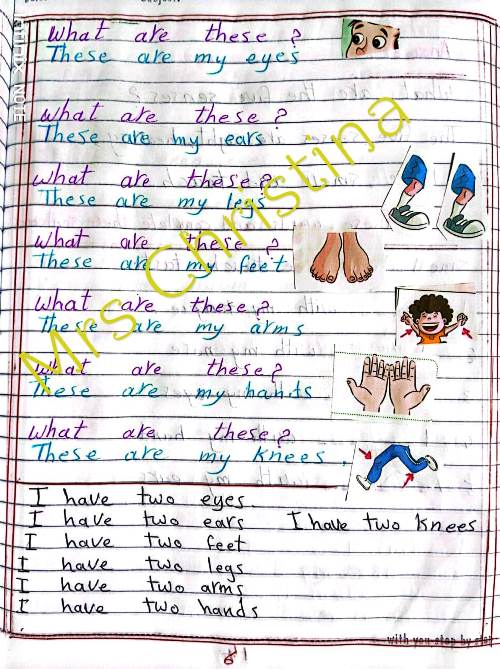 What are these?
These are my eyes
What are these?
These are my ears
What are these?
These are my legs
What are these?
These are my feet
What are these?
These are my arms
What are these?
These are my hands
What are these?
These are my knees.
I have two eyes.
I have two ears
I have two knees
I have two feet
I have two legs
I have two arms
I have two hands
Mrs Christina
with you step by step